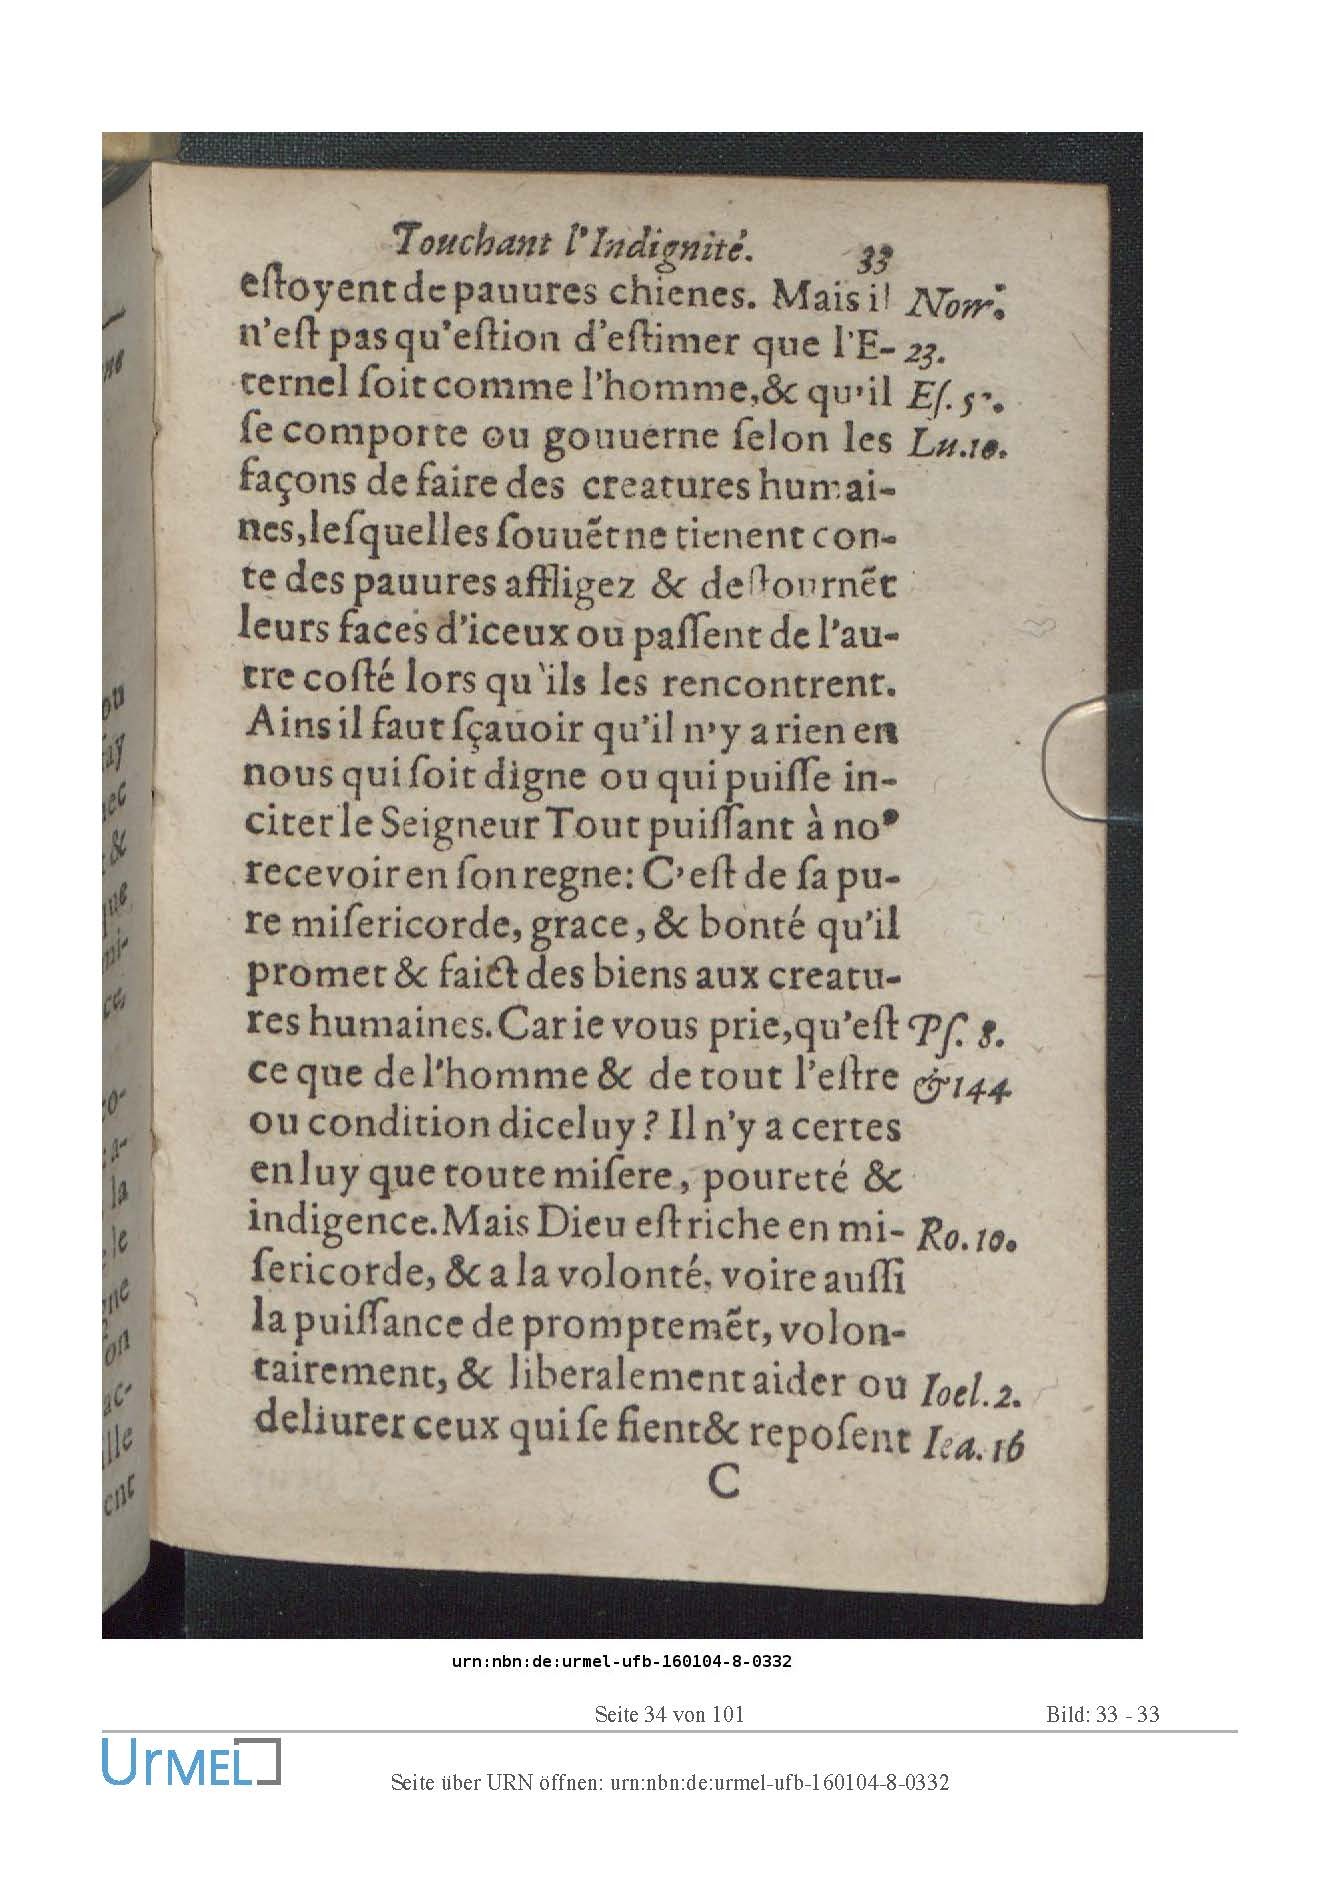 Touchant l'Indignité. 33
eſtoyent de pauures chienes. Mais il
n'eſt pas qu'eſtion d'eſtimer que l'E- 23.
ternel ſoit comme l'homme,& qu'il Eſ.
ſe comporte ou gouuerne ſelon les Lu.10.
façons de faire des creatures humai-
nes,leſquelles ſouuẽt ne tienent con-
te des pauures affligez & deſtournẽt
leurs faces d'iceux ou paſſent de l'au-
tre coſté lors qu'ils les rencontrent.
Ains il faut ſçauoir qu'il n'y a rien en
nous qui ſoit digne ou qui puiſſe in-
citer le Seigneur Tout puiſſant à noꝰ
recevoir en ſon regne: C'eſt de ſa pu-
re miſericorde, grace, & bonté qu'il
promet & faict des biens aux creatu-
res humaines. Car ie vous prie,qu'eſt Pſ. 8.
ce que de l'homme & de tout l'eſtre &144
ou condition diceluy ? Il n'y a certes
en luy que toute miſere, poureté &
indigence. Mais Dieu eſt riche en mi- Ro.10.
ſericorde, & a la volonté, voire auſſi
la puiſſance de promptemẽt, volon-
tairement, & liberalement aider ou Ioel.2.
deliurer ceux qui ſe fient & repoſent 16
C
urn:nbn:de:urmel-ufb-160104-8-0332
Seite 34 von 101 Bild: 33 - 33
UrMEL
Seite über URN öffnen: urn:nbn:de:urmel-ufb-160104-8-0332